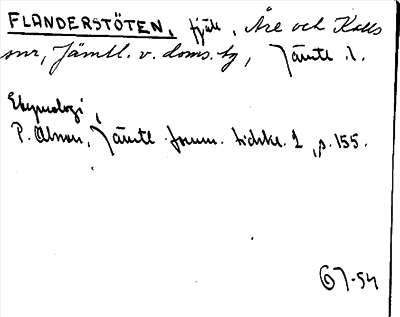 FLANDERSTÖTEN, fjäll, Åre och Kalls
snr, Jämtl. v. doms. hg, Jämtl. l.
Etymologi,
P. Olsson, Jämtl. fornm. tidskr. 2, s. 155.
67-54